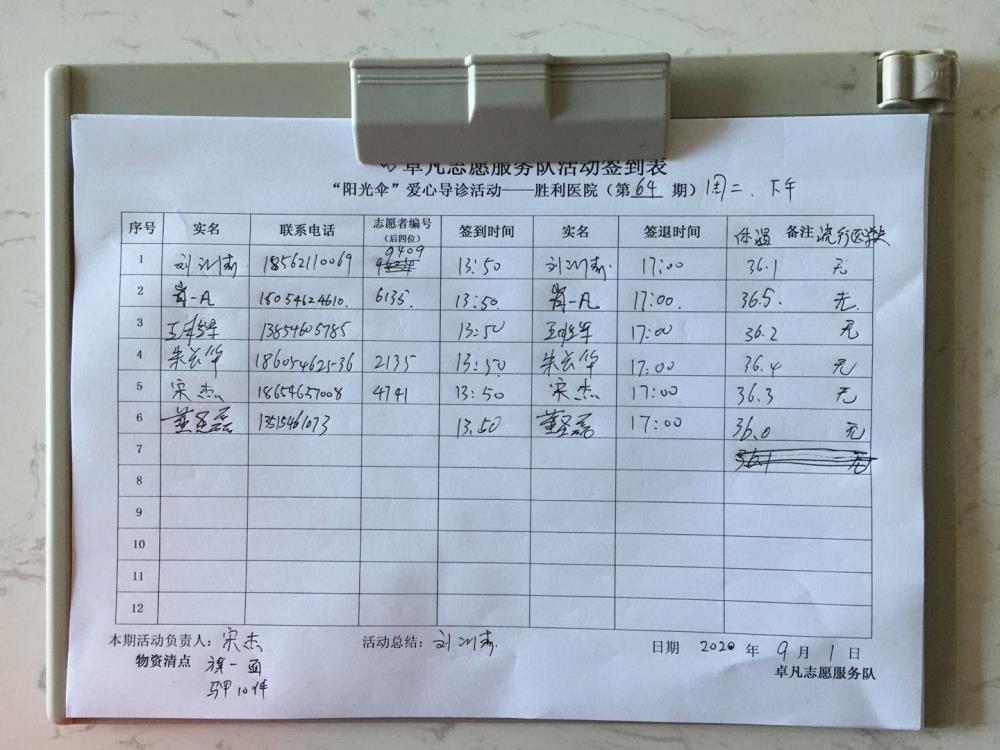 卓凡志愿服务队活动签到表
“阳光伞”爱心导诊活动——胜利医院（第 64 期）周二、下午
序号 实名 联系电话 志愿者编号（后四位） 签到时间 实名 签退时间 体温 备注 流行医学史
1 刘 18562110069 9409 13:50 刘 17:00 36.1 无
2 一凡 15054624610. 6135. 13:50. 一凡 17:00. 36.5. 无.
3 王 13854605785 13:50 王 17:00 36.2 无
4 朱云华 18605462536 2135 13:50 朱云华 17:00 36.4 无
5 宋杰 18654657008 4741 13:50 宋杰 17:00 36.3 无
6 董圣磊 13515461073 13.50 董圣磊 17:00 36.0 无
7 36.1 无
8
9
10
11
12
本期活动负责人：宋杰 活动总结：刘 日期 2020 年 9 月 1 日
物资清点 旗一面 卓凡志愿服务队
马甲10件